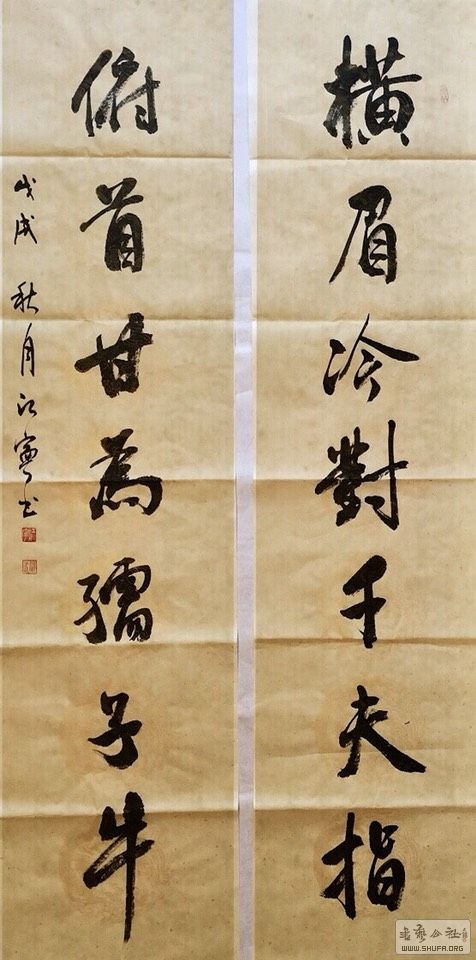 橫眉冷對千夫指
俯首甘為孺子牛
戊戌秋月江寧书
WWW.SHUFA.ORG